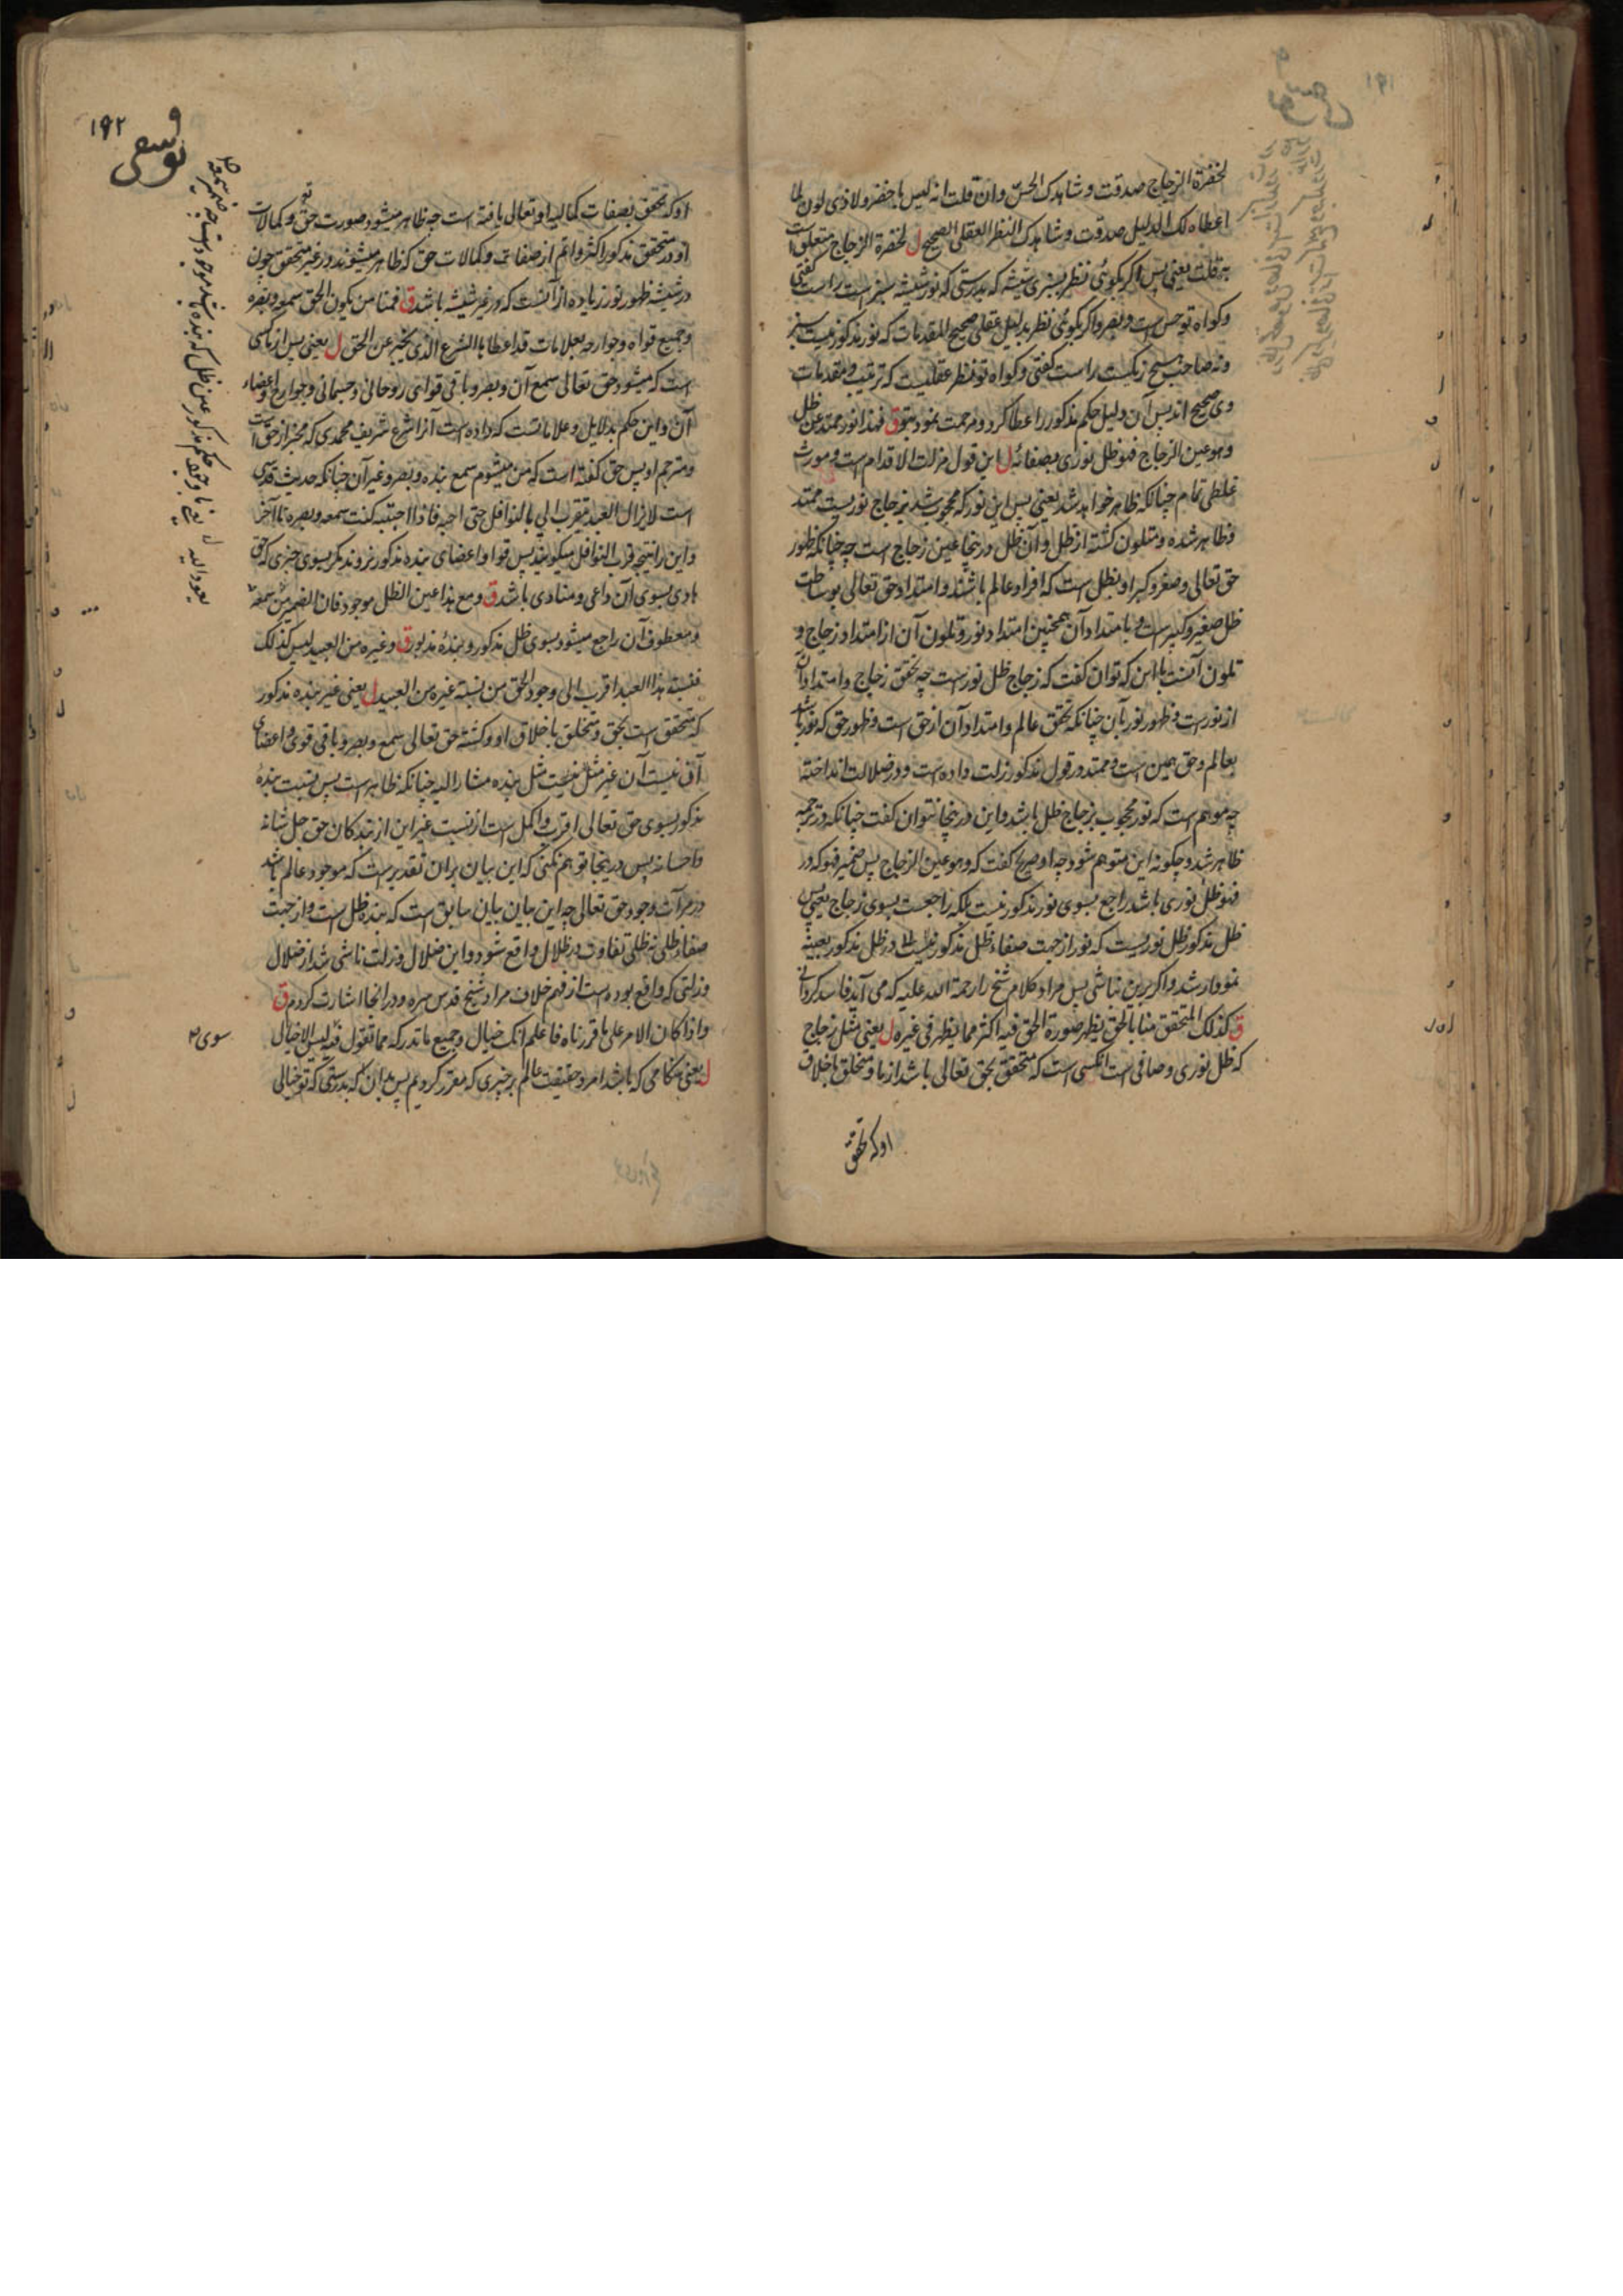 لخضرة الزجاج صدقت و شاهدک الحسّ وان قلت انه لیس باخضر ولا ذی لون لما
اعطاه لک الدلیل صدقت و شاهدک النظر العقلی الصحیح ل لخضرة الزجاج متعلق است
به قلت یعنی پس اگر بکوئی نظر بسبزی شیشه که بدرستی که نور شیشه سبز است راست کفتی
و کواه تو حس است و بصر و اکر بکوئی نظر بدلیل عقلی صحیح المقدمات که نور مذکور نیست سبز
و نه صاحب هیچ رنکیست راست کفتی و کواه تو نظر عقلیست که ترتیب و مقدمات
وی صحیح اند پس آن دلیل حکم مذکور را عطا کرد و مرحمت نمود بتو ق فهذا نور ممتد عن ظل
و هو عین الزجاج فهو ظل نوری بصفائه ل این قول مزلت الاقدام است و مورث
غلطی تمام چنانکه ظاهر خواهد شد یعنی پس این نور که محجوب شد بزجاج نوریست ممتد
و ظاهر شده و متلون کشته از ظل و آن ظل درینجا عین زجاج است چه چنانکه ظهور
حق تعالی و صغر و کبر او بظل است که افراد عالم باشند و امتداد حق تعالی بوساطت
ظل صغیر و کبیر است و بامتداد آن همچنین امتداد نور و تلون آن از امتداد زجاج و
تلون آنست با این که توان کفت که زجاج ظل نور است چه تحقق زجاج و امتداد آن
از نور است و ظهور نور بآن چنانکه تحقق عالم و امتداد آن از حق است و ظهور حق که نور باشد
بعالم و حق همین است و ممتد در قول مذکور زلت داده است و در ضلالت انداخته
چه موهم است که نور محجوب بزجاج ظل باشد و این درینجا نتوان کفت چنانکه در ترجمه
ظاهر شد و چکونه این متوهم شود چه او صریح کفت که و هو عین الزجاج پس ضمیر فهو که در
فهو ظل نوری باشد راجع بسوی نور مذکور نیست بلکه راجعست بسوی زجاج یعنی پس
ظل مذکور ظل نوریست که نور از جهت صفاء ظل مذکور در ظل مذکور بعینه
نمودار شد و اکر برین نباشی پس مراد کلام شیخ را رحمة الله علیه که می آید فاسد کردانی
ق کذلک المتحقق منا بالحق یظهر صورة الحق فیه اکثر مما یظهر فی غیره ل یعنی مثل زجاج
که ظل نوری و صافی است انکسی است که متحقق بحق تعالی باشد از ما و متخلق باخلاق
او که تحقق
۱۹۲
او که تحقق بصفات کمالیه او تعالی یافته است چه ظاهر میشود صورت حق و کمالات
او در متحقق مذکور اکثر و اتم از صفات و کمالات حق که ظاهر میشوند در غیر متحقق چون
در شیشه ظهور نور زیاده از آنست که در غیر شیشه باشد ق فمنا من یکون الحق سمعه و بصره
و جمیع قواه و جوارحه بعلامات قد اعطاها الشرع الذی یخبر عن الحق ل یعنی پس از ما کسی
است که میشود حق تعالی سمع آن و بصر و باقی قوای روحانی و جسمانی و جوارح و اعضاء
آن و این حکم بدلایل و علاماتست که داده است آنرا شرع شریف محمدی که مخبر از حق است
و مترجم او پس حق کفته است که من میشوم سمع بنده و بصر و غیر آن چنانکه حدیث قدسی
است لا یزال العبد یتقرب الی بالنوافل حتی احبه فاذا احببته کنت سمعه و بصره تا آخر
و این را نتیجه قرب النوافل میکویند پس قوا و اعضای بنده مذکور نروند مکر بسوی چیزی که حق
هادی بسوی آن داعی و منادی باشد ق و مع هذا عین الظل موجود فان الضمیر من سمعه
و معطوف آن راجع میشود بسوی ظل مذکور و بنده مذبور ق و غیره من العبید لیس کذلک
فنسبة هذا العبد اقرب الی وجود الحق من نسبة غیره من العبید ل یعنی غیر بنده مذکور
که متحقق است بحق و متخلق باخلاق او و کشته حق تعالی سمع و بصر و باقی قوی و اعضای
آن نیست آن غیر مثل بنده مشار الیه چنانکه ظاهر است پس نسبت بنده
مذکور بسوی حق تعالی اقرب و اکمل است از نسبت غیر این از بندکان حق جل شانه
و احسانه پس درینجا توهم نکنی که این بیان بران تقدیر است که موجود عالم باشد
در مرآت وجود حق تعالی چه این بیان بیان سابق است که بنده ظل است و از جهت
صفاء ظلی نه ظلی تفاوت در ظلال واقع شود و این ضلال و زلت ناشی شد از ضلال
و زلتی که واقع بوده است از فهم خلاف مراد شیخ قدس سره و در انجا اشارت کردم ق
و اذا کان الامر علی ما قررناه فاعلم انک خیال و جمیع ما تدرکه مما تقول فیه لیس الا خیال
ل یعنی هنکامی که باشد امر و حقیقت عالم بر چیزی که مقرر کردیم پس بدان که بدرستی که تو خیالی
یوسفی
سوی
یعود الیه